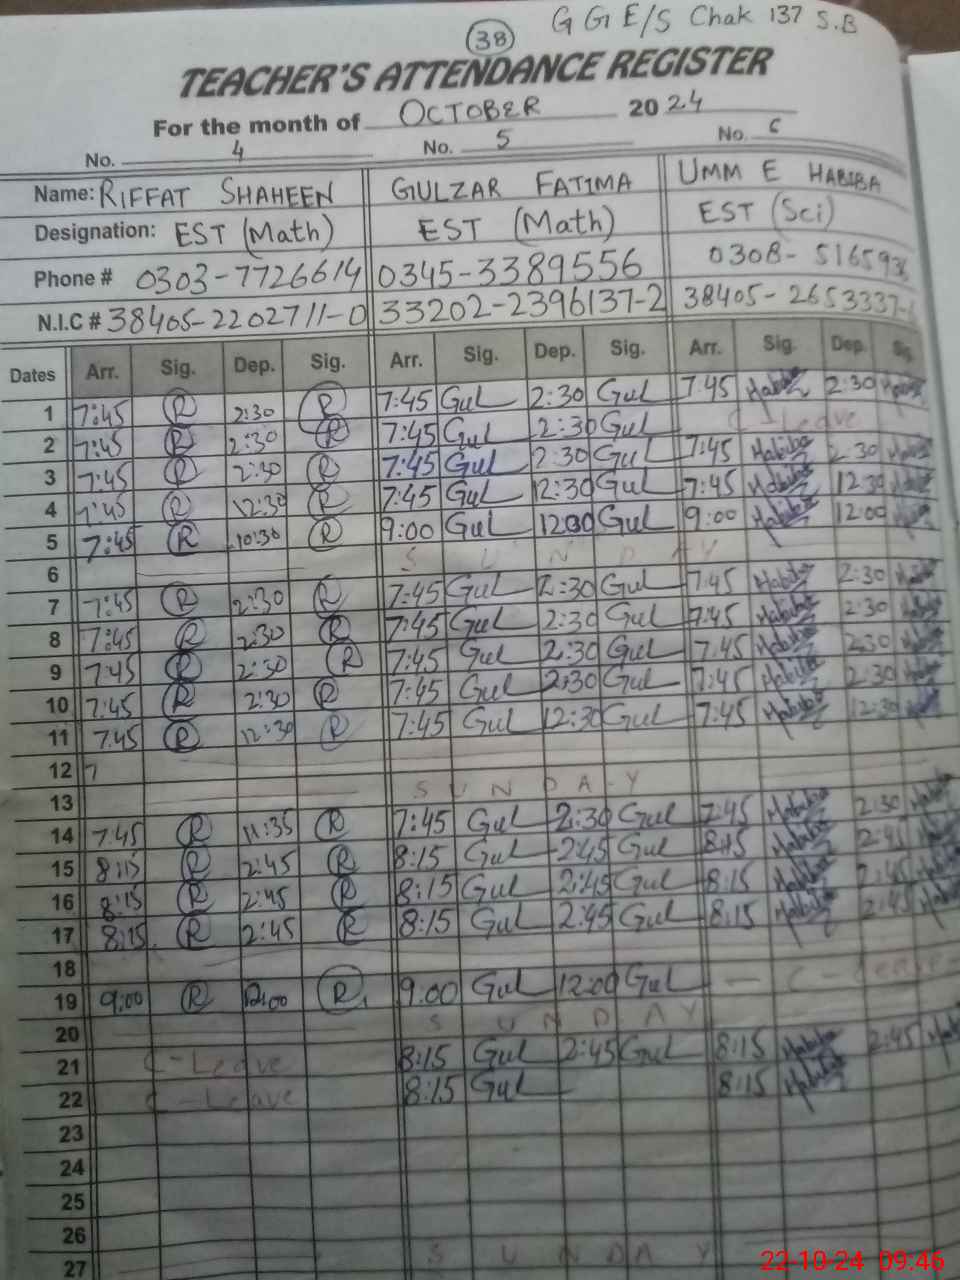 G G E/S Chak 137 S.B
38
TEACHER'S ATTENDANCE REGISTER
For the month of OCTOBER 2024
No. 4 No. 5 No. 6
Name: RIFFAT SHAHEEN GULZAR FATIMA UMM E HABIBA
Designation: EST (Math) EST (Math) EST (Sci)
Phone # 0303-7726614 0345-3389556 0308-516593
N.I.C # 38405-2202711-0 33202-2396137-2 38405-2653337-
Dates Arr. Sig. Dep. Sig. Arr. Sig. Dep. Sig. Arr. Sig. Dep. Sig.
1 7:45 R 2:30 R 7:45 Gul 2:30 Gul 7:45 Habiba 2:30 Habiba
2 7:45 R 2:30 R 7:45 Gul 2:30 Gul C-Leave
3 7:45 R 2:30 R 7:45 Gul 2:30 Gul 7:45 Habiba 2:30 Habiba
4 7:45 R 12:30 R 7:45 Gul 12:30 Gul 7:45 Habiba 12:30 Habiba
5 7:45 R 10:30 R 9:00 Gul 12:00 Gul 9:00 Habiba 12:00 Habiba
6 SUNDAY
7 7:45 R 2:30 R 7:45 Gul 2:30 Gul 7:45 Habiba 2:30 Habiba
8 7:45 R 2:30 R 7:45 Gul 2:30 Gul 7:45 Habiba 2:30 Habiba
9 7:45 R 2:30 R 7:45 Gul 2:30 Gul 7:45 Habiba 2:30 Habiba
10 7:45 R 2:30 R 7:45 Gul 2:30 Gul 7:45 Habiba 2:30 Habiba
11 7:45 R 12:30 R 7:45 Gul 12:30 Gul 7:45 Habiba 12:30 Habiba
12 7
13 SUNDAY
14 7:45 R 11:35 R 7:45 Gul 2:30 Gul 7:45 Habiba 2:30 Habiba
15 8:15 R 2:45 R 8:15 Gul 2:45 Gul 8:15 Habiba 2:45 Habiba
16 8:15 R 2:45 R 8:15 Gul 2:45 Gul 8:15 Habiba 2:45 Habiba
17 8:15 R 2:45 R 8:15 Gul 2:45 Gul 8:15 Habiba 2:45 Habiba
18
19 9:00 R 12:00 R 9:00 Gul 12:00 Gul — C-Leave-
20 SUNDAY
21 C-Leave 8:15 Gul 2:45 Gul 8:15 Habiba 2:45 Habiba
22 C-Leave 8:15 Gul 8:15 Habiba
23
24
25
26
27 SUNDAY
22-10-24 09:46